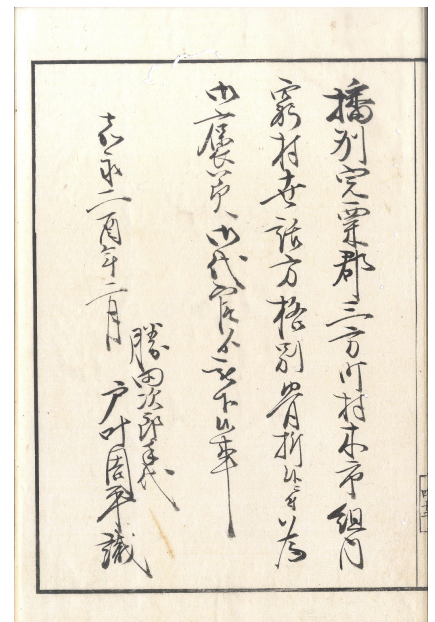 播州宍粟郡三方町村木市組内
窮村世話方格別骨折候ニ付為
御褒美御代官所ゟ被下候事
嘉永二酉年二月
勝田次郎手代
戸叶周平識